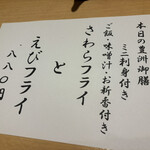 本日の豊洲御膳
ミニ刺身付き
ご飯・味噌汁・お新香付き
さわらフライ
と
えびフライ
八八〇円